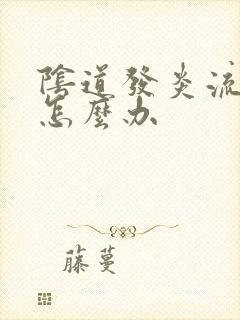 陰道發炎流
怎麼办
藤蔓